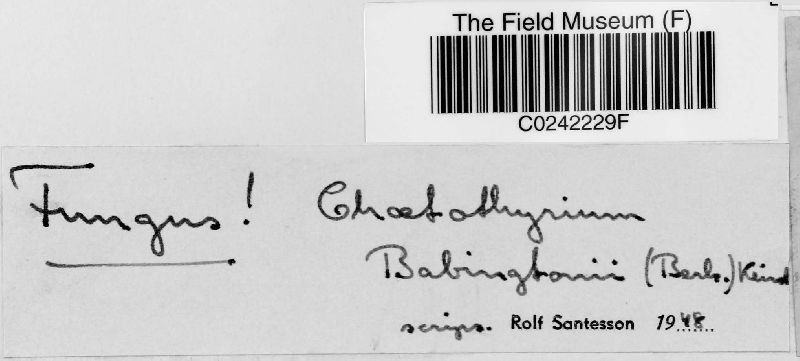 The Field Museum (F)
C0242229F
Fungus! Chætothyrium
Babingtonii (Berk.) Keissl
scrips. Rolf Santesson 1948